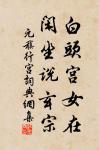 白頭宮女在
閑坐說玄宗
元稹行宮詞典網集